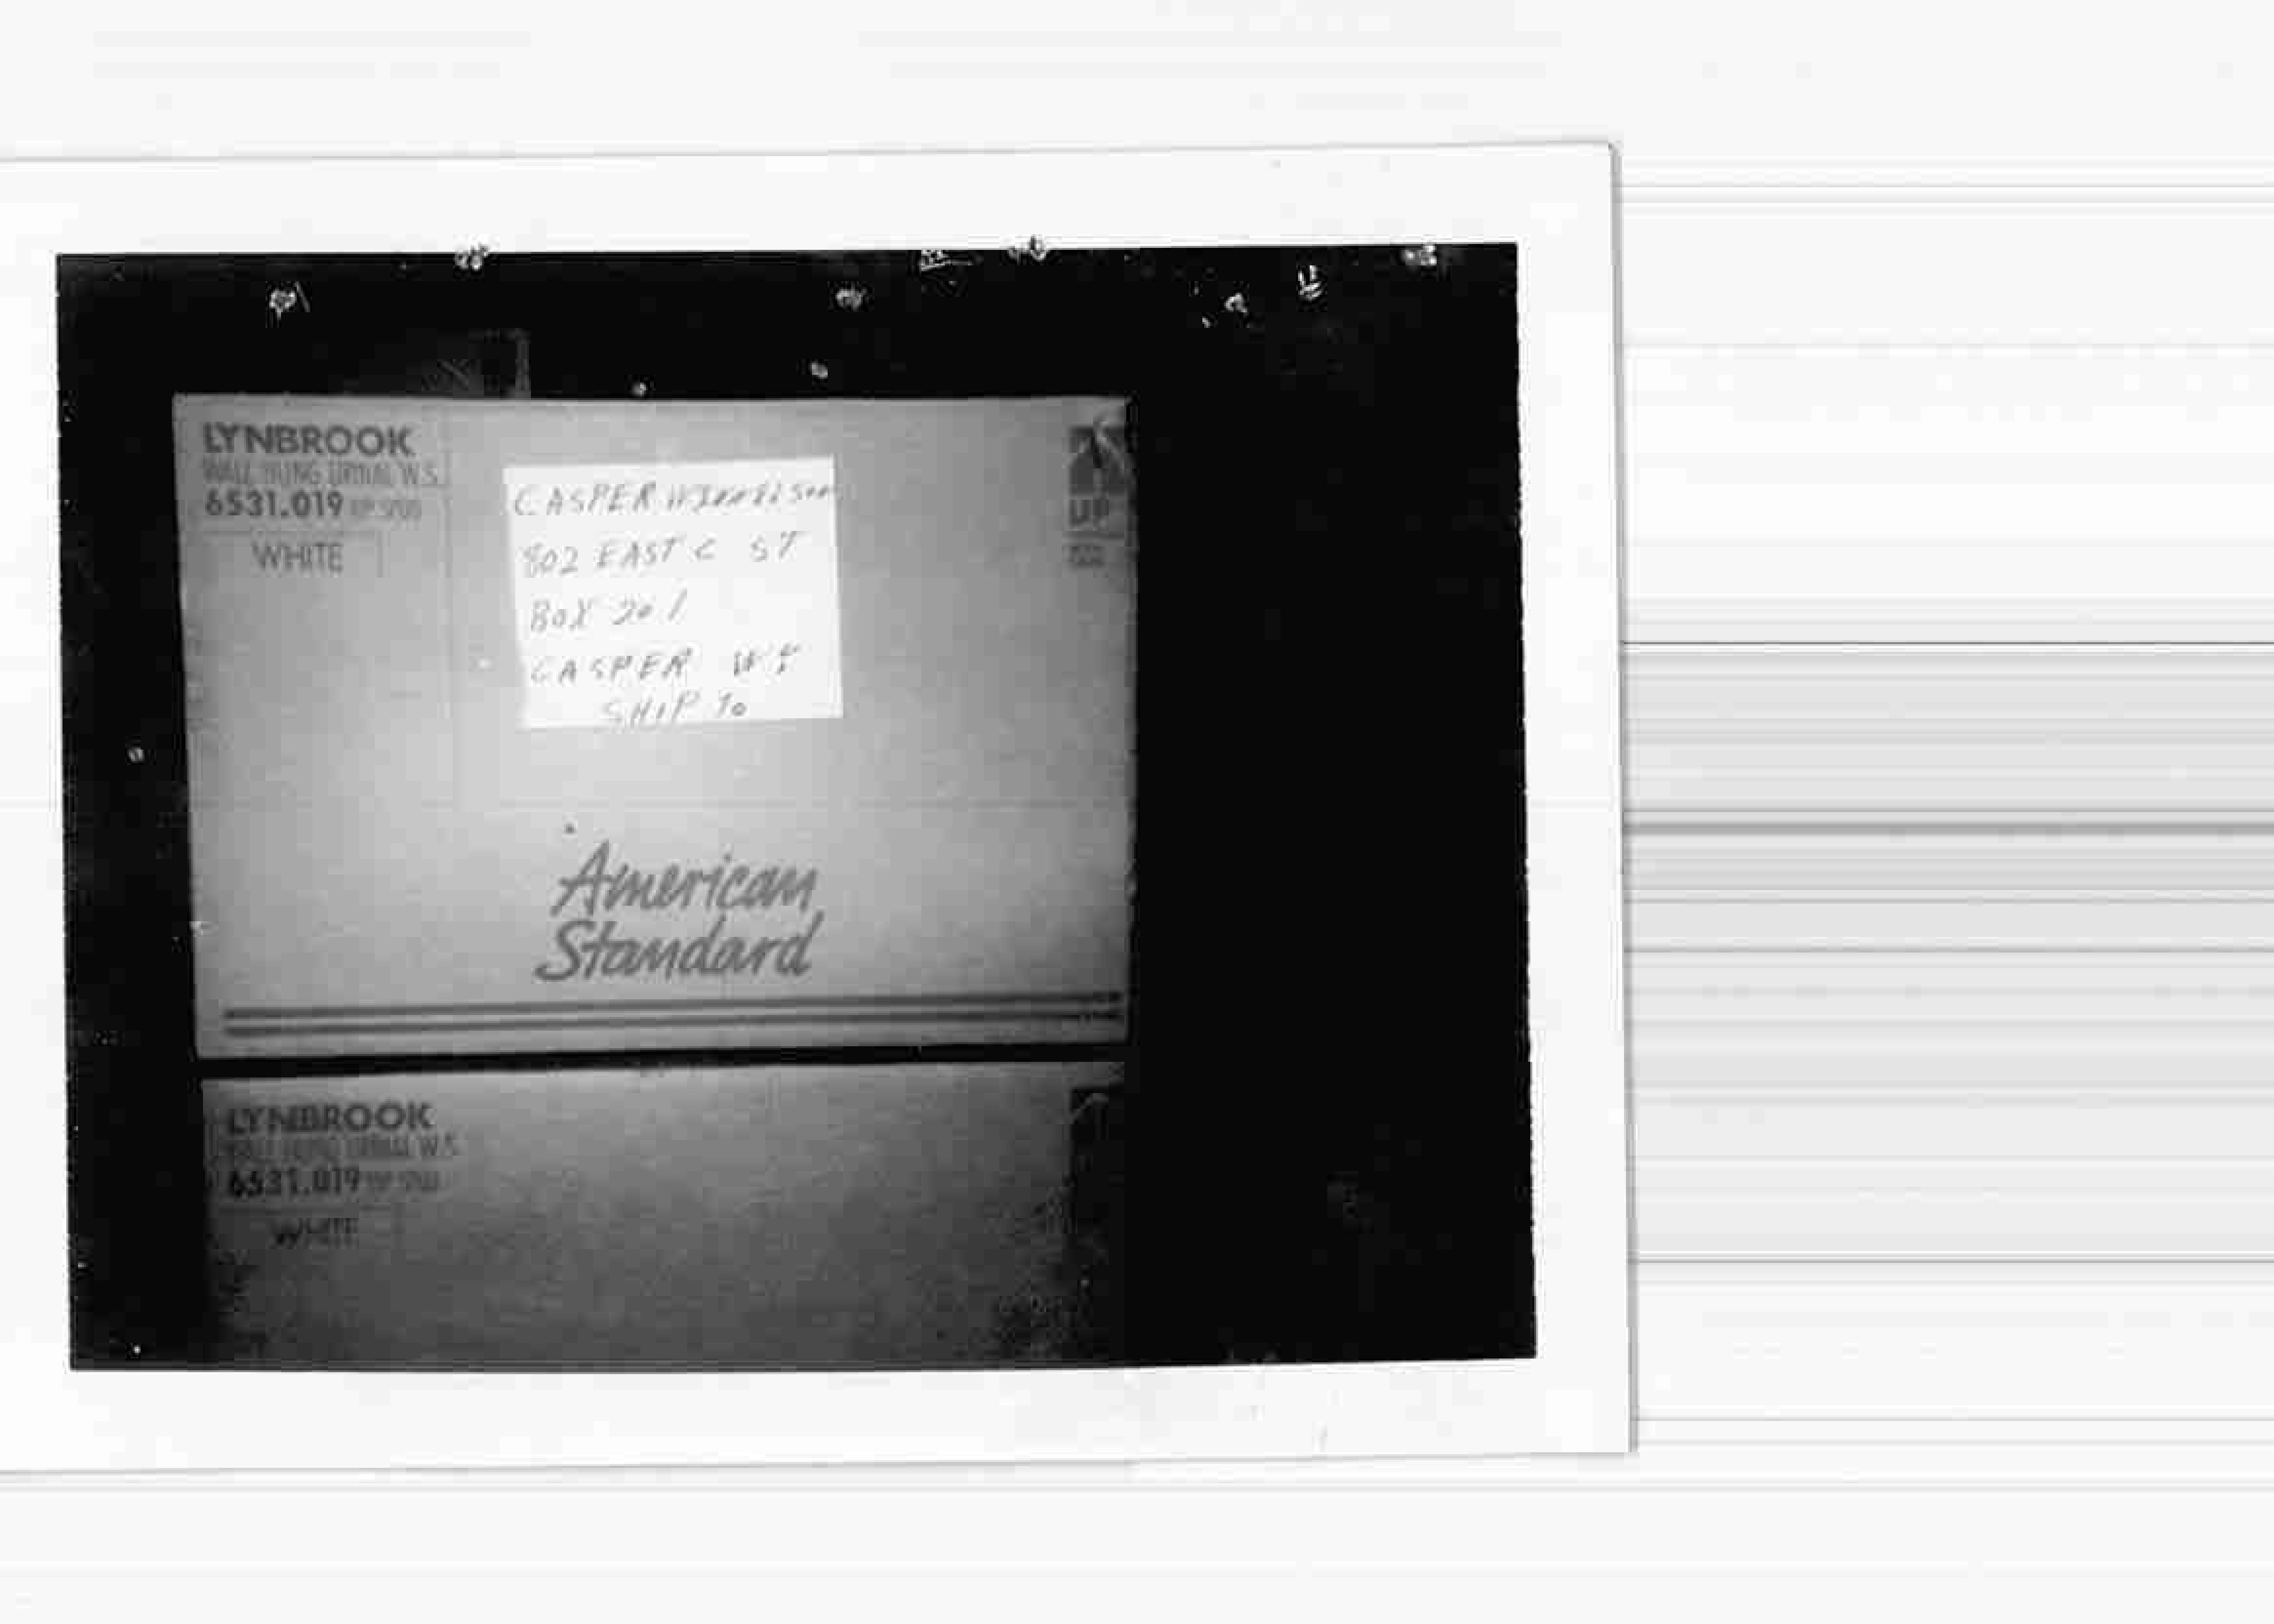 LYNBROOK
WALL HUNG URINAL W.S.
6531.019
WHITE
UP
CASPER
802 EAST C ST
BOX 201
CASPER WY
SHIP TO
American
Standard
LYNBROOK
WALL HUNG URINAL W.S.
6531.019
WHITE